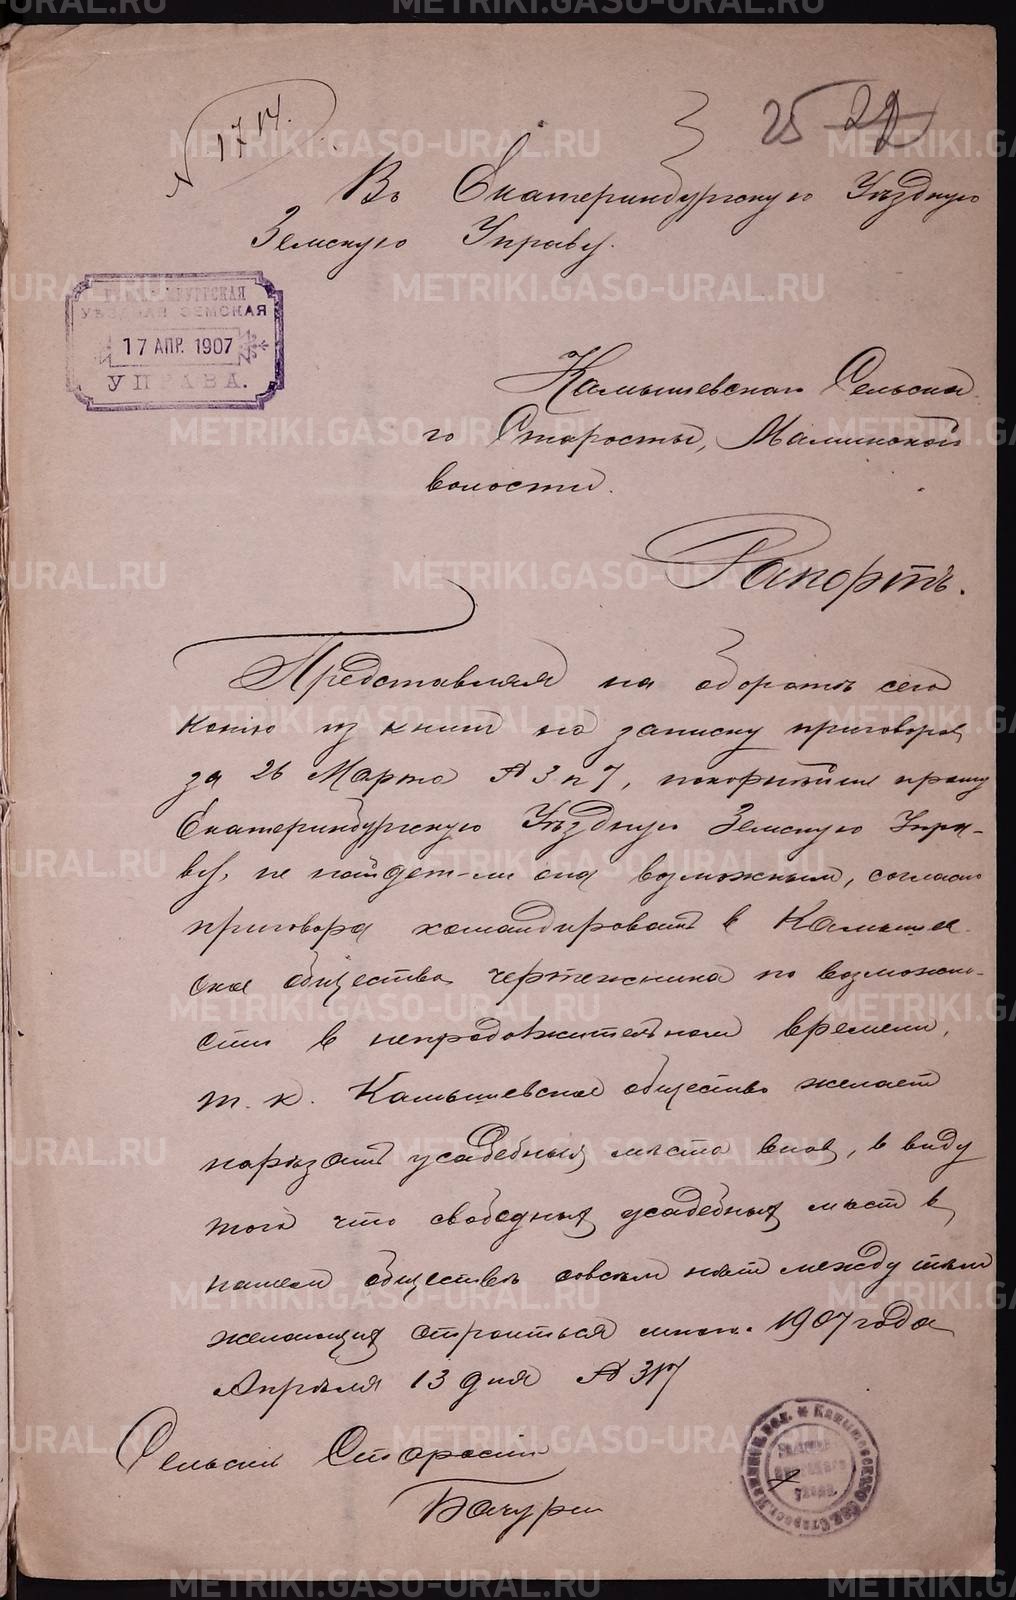 1714.
25 22
Въ Екатеринбургскую Уѣздную
Земскую Управу.
УѢЗДНАЯ ЗЕМСКАЯ
17 АПР. 1907
УПРАВА.
Камышевскаго Сельска-
го Старосты, Маминской
волости.
Рапортъ.
Представляя на оборотѣ сего
копію из книги на записку приговоров
за 26 Марта № 3 и 7, покорнѣйше прошу
Екатеринбургскую Уѣздную Земскую Упра-
ву, не найдет-ли она возможным, согласно
приговора командировать в Камышев-
ское общество чертежника по возможно-
сти в непродолжительном времени,
т. к. Камышевское общество желает
нарѣзать усадебныя мѣста вновь, в виду
того что свободных усадебных мѣст в
нашем обществѣ совсѣм нѣт между тѣм
желающих строиться много. 1907 года
Апрѣля 13 дня № 317
Сельский Староста
Бачурин
METRIKI.GASO-URAL.RU